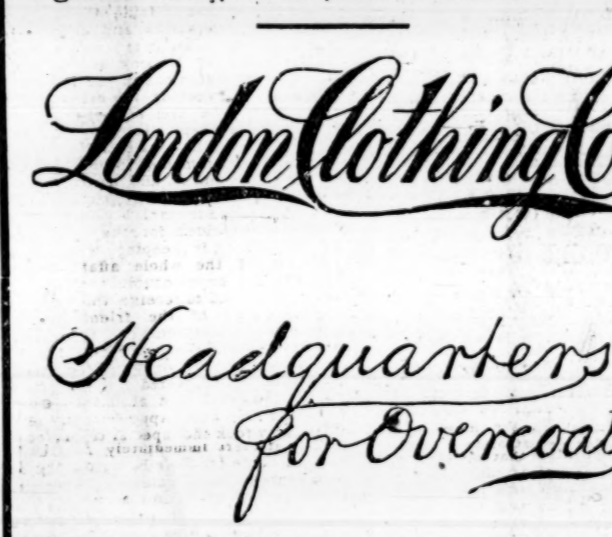 London Clothing C
Headquarters
for Overcoat